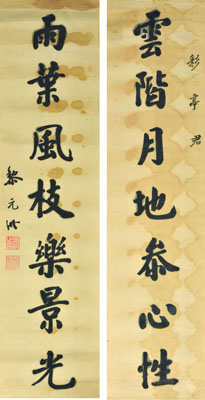 彩亭君
雲階月地恭心性
雨葉風枝樂景光
黎元洪